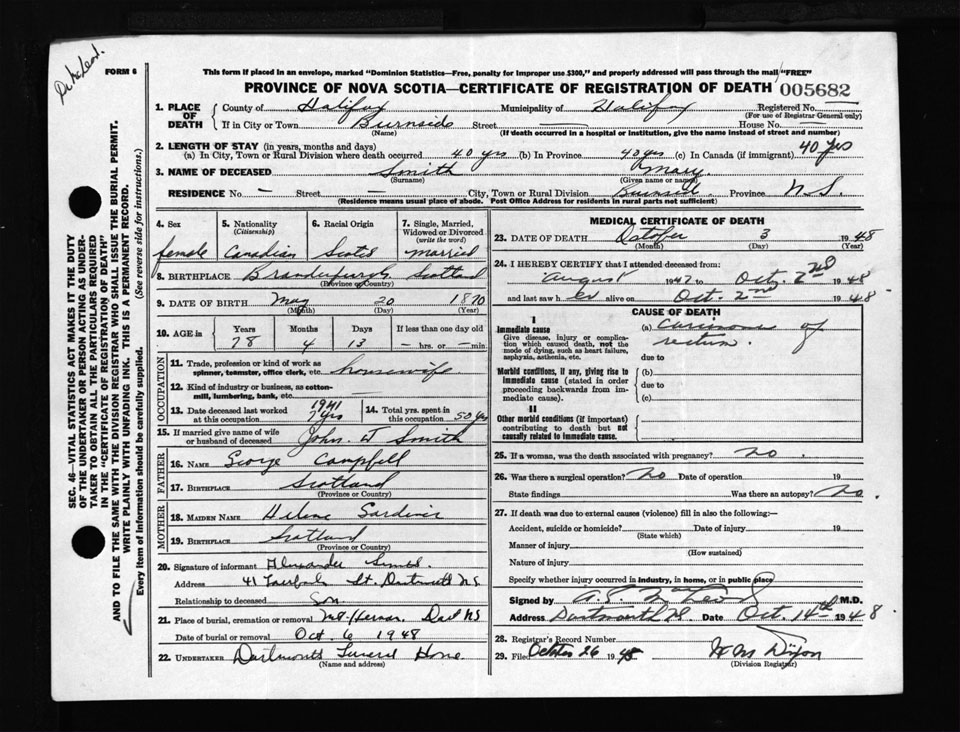 Dr. McLeod.
FORM 6
This form if placed in an envelope, marked "Dominion Statistics—Free, penalty for improper use $300," and properly addressed will pass through the mail "FREE"
PROVINCE OF NOVA SCOTIA—CERTIFICATE OF REGISTRATION OF DEATH 005682
1. PLACE OF DEATH County of Halifax Municipality of Halifax Registered No.
(For use of Registrar General only)
If in City or Town Burnside Street — House No. —
(If death occurred in a hospital or institution, give the name instead of street and number)
2. LENGTH OF STAY (in years, months and days)
(a) In City, Town or Rural Division where death occurred 40 yrs (b) In Province 40 yrs (c) In Canada (if immigrant) 40 yrs
3. NAME OF DECEASED Smith Mary
(Surname) (Given name or names)
RESIDENCE No — Street — City, Town or Rural Division Burnside Province N.S.
(Residence means usual place of abode. Post Office Address for residents in rural parts not sufficient)
4. Sex female
5. Nationality (Citizenship) Canadian
6. Racial Origin Scots
7. Single, Married, Widowed or Divorced (write the word) married
8. BIRTHPLACE Scotland
(Province or Country)
9. DATE OF BIRTH May 20 1870
(Month) (Day) (Year)
10. AGE in Years Months Days If less than one day old
78 4 13 — hrs. or — min.
OCCUPATION
11. Trade, profession or kind of work as spinner, teamster, office clerk, etc. housewife
12. Kind of industry or business, as cotton-mill, lumbering, bank, etc. —
13. Date deceased last worked at this occupation 1941 7 yrs
14. Total yrs. spent in this occupation 50 yrs
15. If married give name of wife or husband of deceased John. W Smith
FATHER
16. NAME George Campbell
17. BIRTHPLACE Scotland
(Province or Country)
MOTHER
18. MAIDEN NAME Helene
19. BIRTHPLACE Scotland
(Province or Country)
20. Signature of informant Alexander
Address 41 St. Dartmouth N.S
Relationship to deceased Son
21. Place of burial, cremation or removal Mt. Herman. Dart NS
Date of burial or removal Oct. 6 1948
22. UNDERTAKER Dartmouth Funeral Home
(Name and address)
MEDICAL CERTIFICATE OF DEATH
23. DATE OF DEATH October 3 1948
(Month) (Day) (Year)
24. I HEREBY CERTIFY that I attended deceased from:
August 1947 to Oct. 2nd 1948
and last saw h er alive on Oct. 2nd 1948
CAUSE OF DEATH
I
Immediate cause
Give disease, injury or complication which caused death, not the mode of dying, such as heart failure, asphyxia, asthenia, etc.
(a) carcinoma of rectum.
due to
Morbid conditions, if any, giving rise to immediate cause (stated in order proceeding backwards from immediate cause).
(b)
due to
(c)
II
Other morbid conditions (if important) contributing to death but not causally related to immediate cause.
25. If a woman, was the death associated with pregnancy? no.
26. Was there a surgical operation? No Date of operation 19
State findings Was there an autopsy? No.
27. If death was due to external causes (violence) fill in also the following:—
Accident, suicide or homicide? Date of injury 19
(State which)
Manner of injury
(How sustained)
Nature of injury
Specify whether injury occurred in industry, in home, or in public place
Signed by McLeod M.D.
Address Dartmouth N.S. Date Oct. 14th 1948
28. Registrar's Record Number
29. Filed October 26 1948 Dixon
(Division Registrar)
SEC. 46—VITAL STATISTICS ACT MAKES IT THE DUTY
OF THE UNDERTAKER OR PERSON ACTING AS UNDERTAKER
TO OBTAIN ALL THE PARTICULARS REQUIRED
IN THE "CERTIFICATE OF REGISTRATION OF DEATH"
AND TO FILE THE SAME WITH THE DIVISION REGISTRAR WHO SHALL ISSUE THE BURIAL PERMIT.
WRITE PLAINLY WITH UNFADING INK. THIS IS A PERMANENT RECORD.
Every item of information should be carefully supplied. (See reverse side for instructions.)